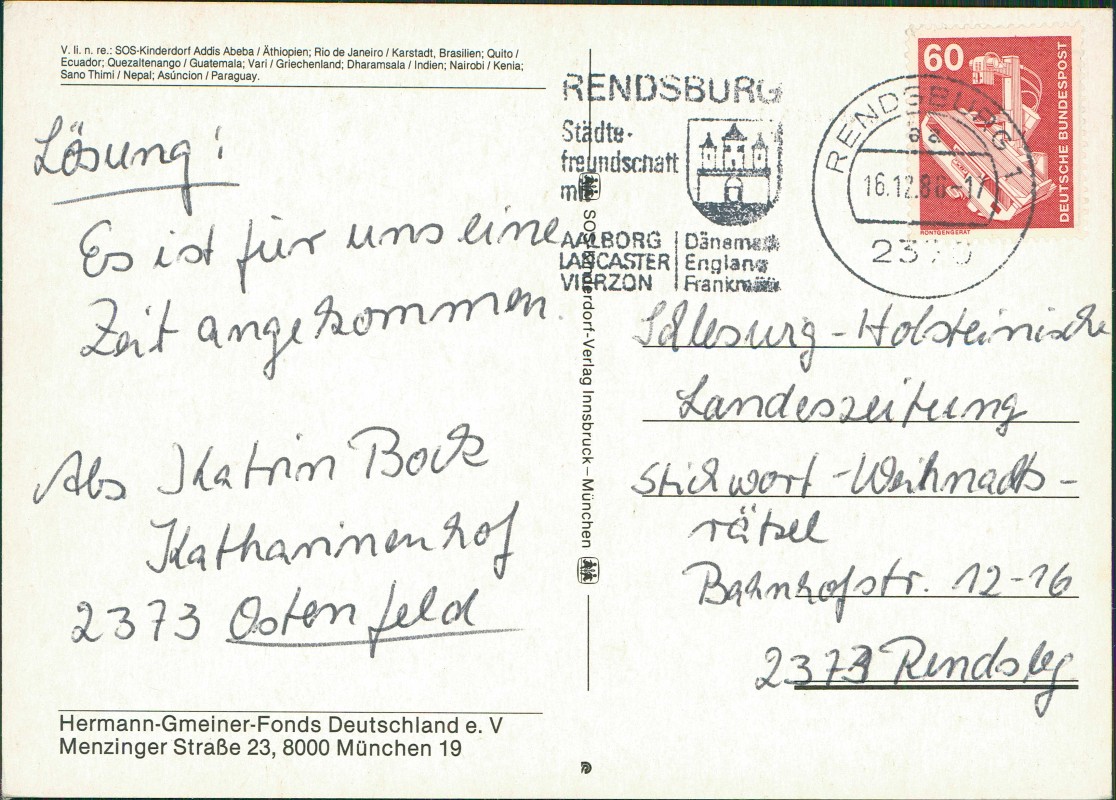 V. li. n. re.: SOS-Kinderdorf Addis Abeba / Äthiopien; Rio de Janeiro / Karstadt, Brasilien; Quito /
Ecuador; Quezaltenango / Guatemala; Vari / Griechenland; Dharamsala / Indien; Nairobi / Kenia;
Sano Thimi / Nepal; Asúncion / Paraguay.
Lösung:
Es ist für uns eine
Zeit angekommen.
Abs Katrin Bock
Katharinenhof
2373 Ostenfeld
Hermann-Gmeiner-Fonds Deutschland e. V
Menzinger Straße 23, 8000 München 19
SOS-Kinderdorf-Verlag Innsbruck – München
RENDSBURG
Städte-
freundschaft
mit
AALBORG Dänemark
LANCASTER England
VIERZON Frankreich
RENDSBURG 1
aa
16.12.80-17
2370
60
DEUTSCHE BUNDESPOST
RÖNTGENGERÄT
Schleswig-Holsteinische
Landeszeitung
Stichwort-Weihnachts-
rätsel
Bahnhofstr. 12-16
Rendsbg